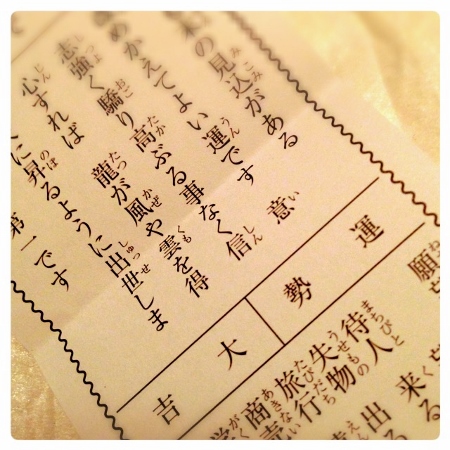 の見込がある
めかえてよい運です　意
志強く驕り高ぶる事なく信
心すれば　龍が風や雲を得
に昇るように出世しま
第一です
運勢
大吉
願
待人　来る
失物　出る
旅行
商売